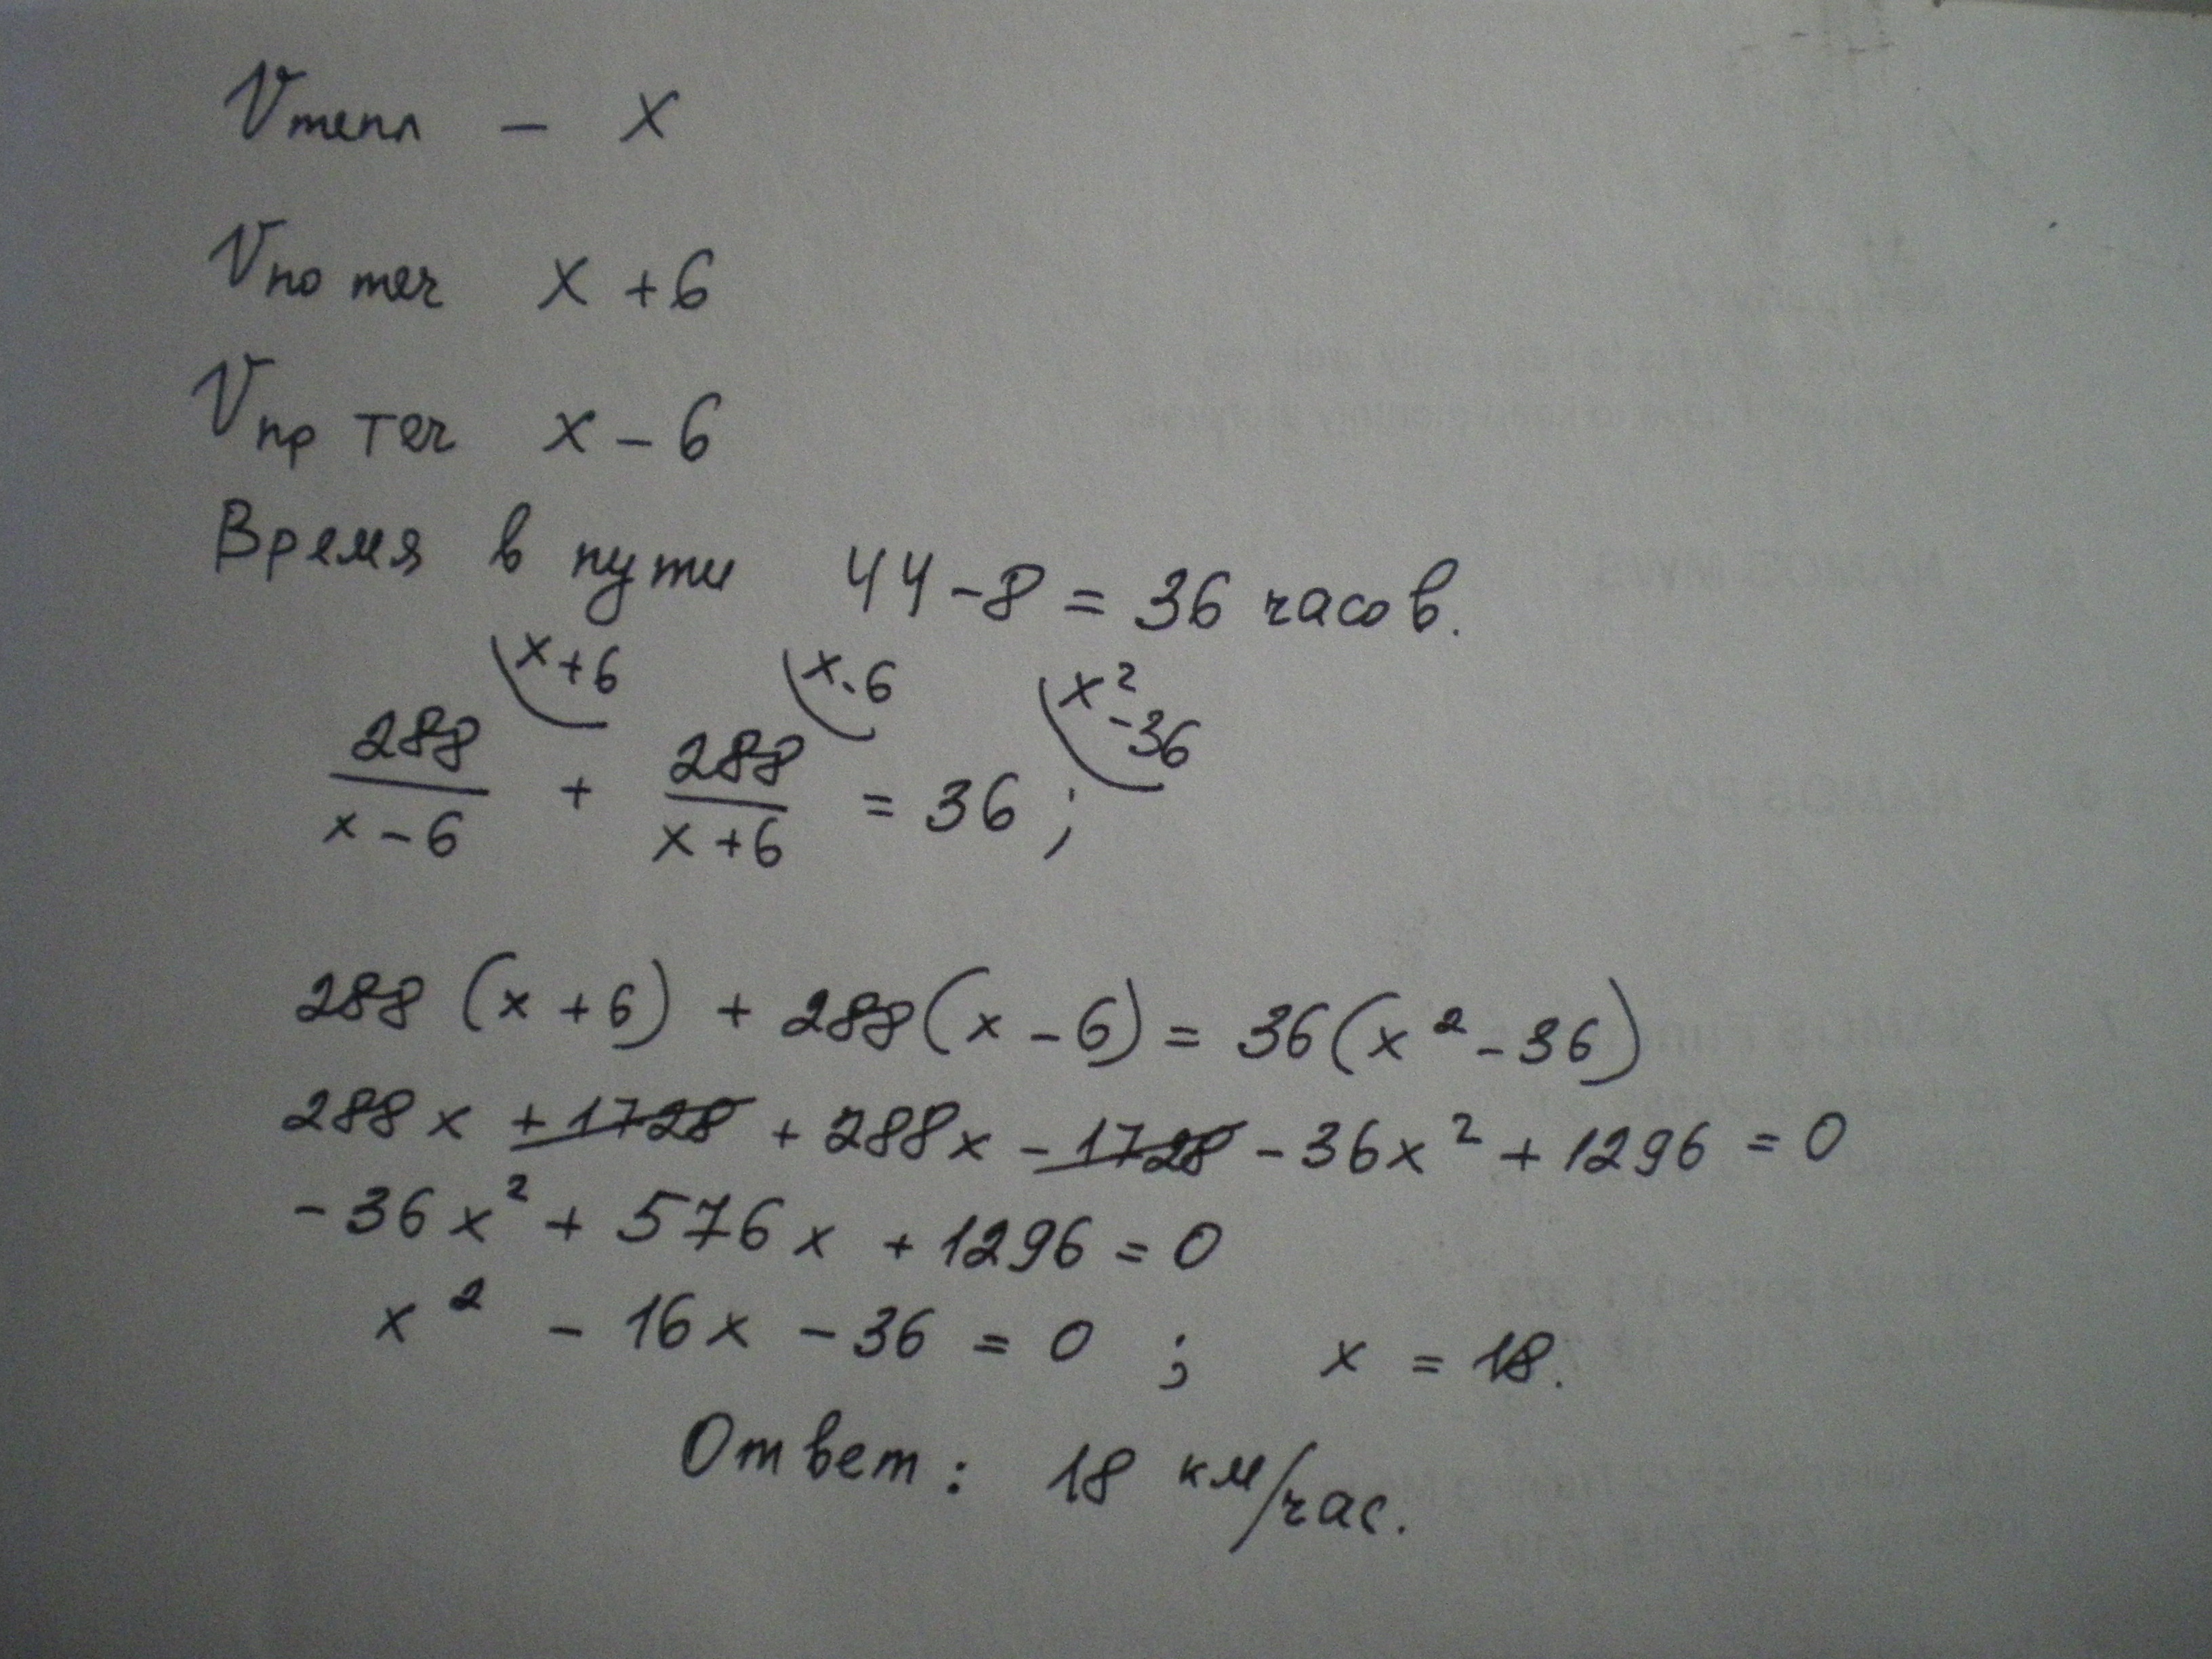 Vтепл - x
Vпо теч x + 6
Vпр теч x - 6
Время в пути 44 - 8 = 36 часов.
x+6 x-6 x²-36
288/(x-6) + 288/(x+6) = 36 ;
288 (x + 6) + 288 (x - 6) = 36 (x² - 36)
288x + 1728 + 288x - 1728 - 36x² + 1296 = 0
- 36x² + 576x + 1296 = 0
x² - 16x - 36 = 0 ; x = 18.
Ответ: 18 км/час.